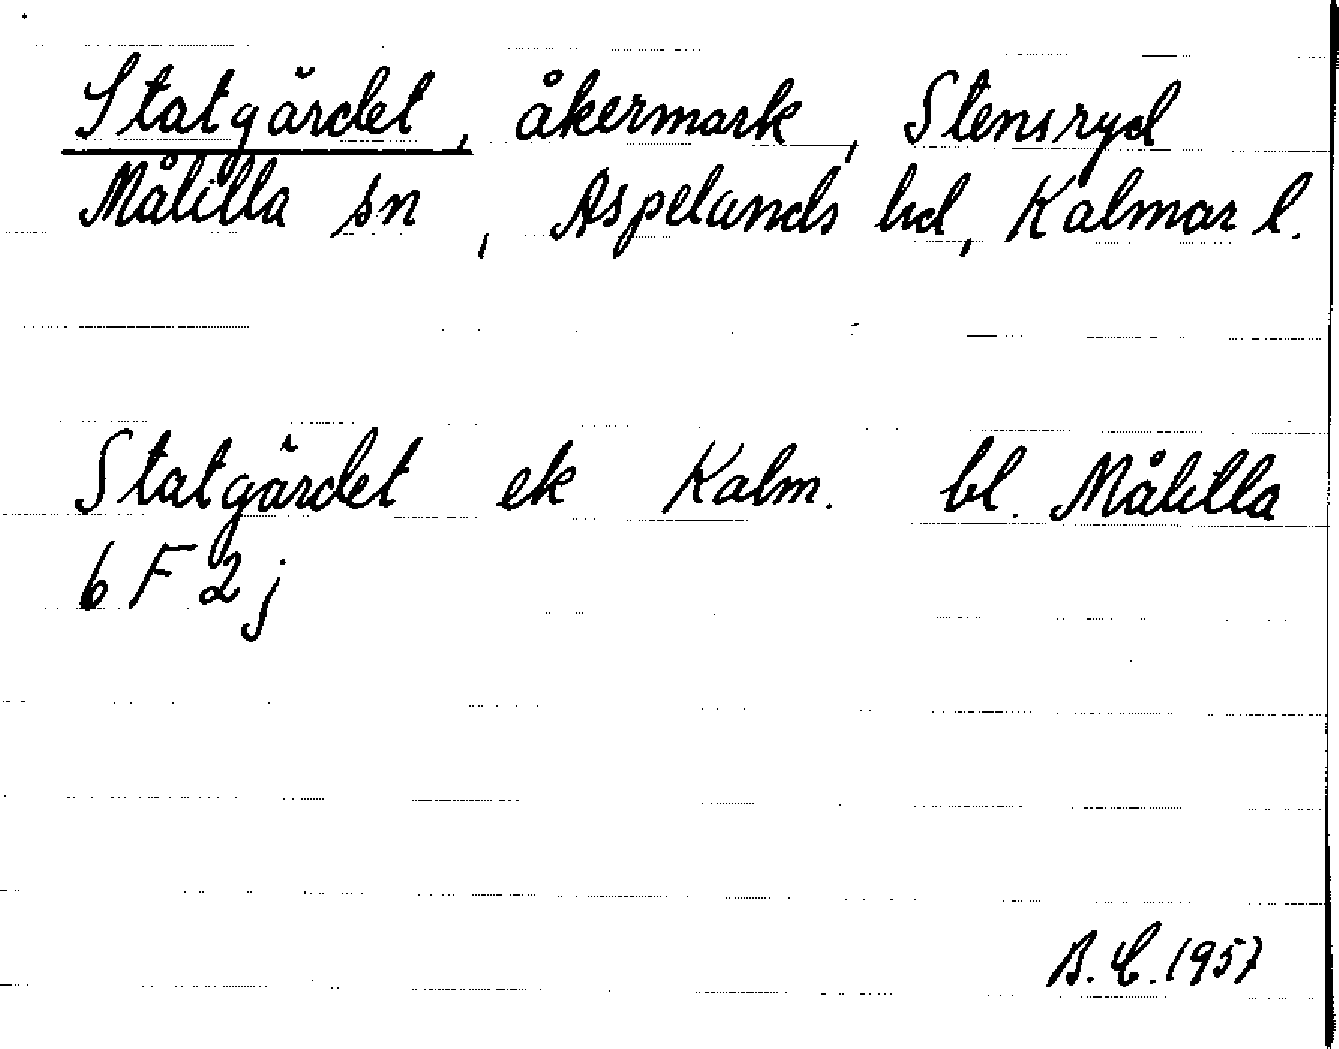 Statgärdet, åkermark, Stensryd
Målilla sn, Aspelands hd, Kalmar l.
Statgärdet ek Kalm. bl. Målilla
6 F 2 j
B.C. 1957